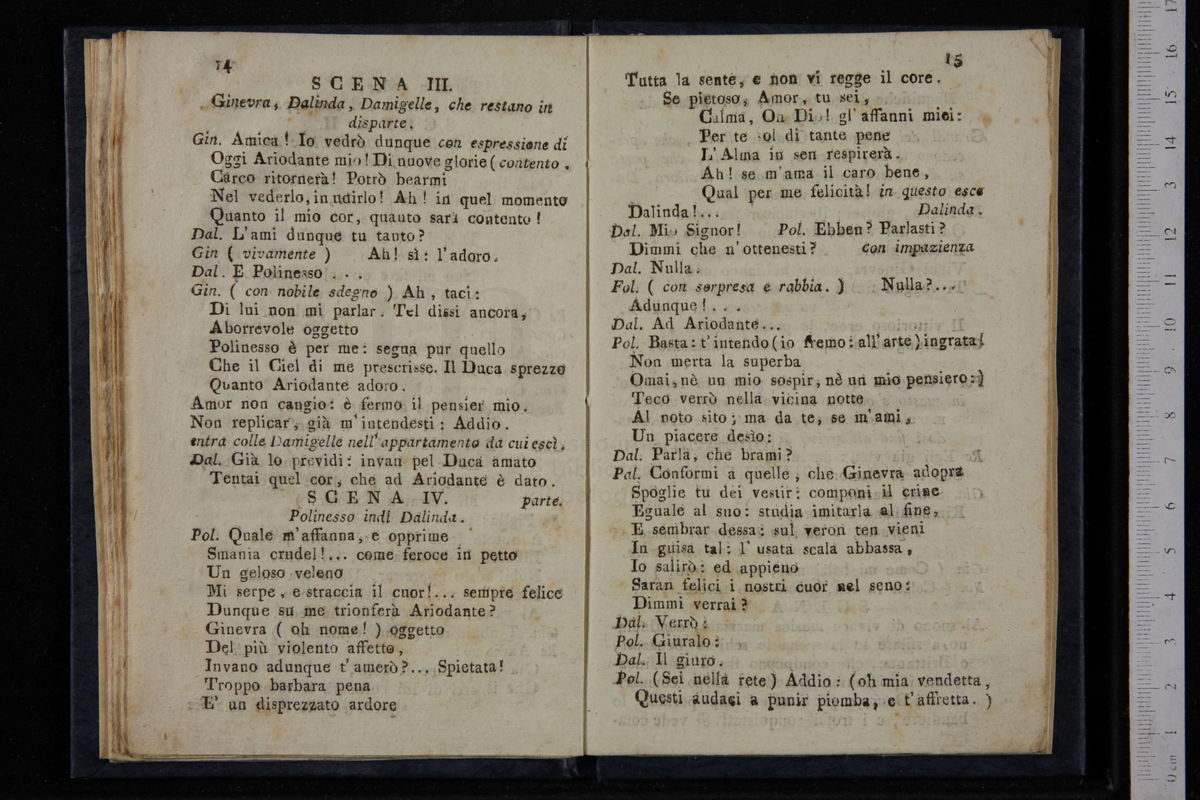 14
SCENA III.
Ginevra, Dalinda, Damigelle, che restano in
disparte.
Gin. Amica! Io vedrò dunque con espressione di
Oggi Ariodante mio! Di nuove glorie (contento.
Carco ritornerà! Potrò bearmi
Nel vederlo, in udirlo! Ah! in quel momento
Quanto il mio cor, quanto sarà contento!
Dal. L'ami dunque tu tanto?
Gin (vivamente) Ah! sì: l'adoro.
Dal. E Polinesso . . .
Gin. (con nobile sdegno) Ah, taci:
Di lui non mi parlar. Tel dissi ancora,
Aborrevole oggetto
Polinesso è per me: segua pur quello
Che il Ciel di me prescrisse. Il Duca sprezzo
Quanto Ariodante adoro.
Amor non cangio: è fermo il pensier mio.
Non replicar, già m'intendesti: Addio.
entra colle Damigelle nell'appartamento da cui escì.
Dal. Già lo previdi: invan pel Duca amato
Tentai quel cor, che ad Ariodante è dato.
SCENA IV. parte.
Polinesso indi Dalinda.
Pol. Quale m'affanna, e opprime
Smania crudel!... come feroce in petto
Un geloso veleno
Mi serpe, e straccia il cuor!... sempre felice
Dunque su me trionferà Ariodante?
Ginevra (oh nome!) oggetto
Del più violento affetto,
Invano adunque t'amerò?... Spietata!
Troppo barbara pena
E' un disprezzato ardore
15
Tutta la sente, e non vi regge il core.
Se pietoso, Amor, tu sei,
Calma, Oh Dio! gl'affanni miei:
Per te sol di tante pene
L'Alma in sen respirerà.
Ah! se m'ama il caro bene,
Qual per me felicità! in questo esce
Dalinda!... Dalinda.
Dal. Mio Signor! Pol. Ebben? Parlasti?
Dimmi che n'ottenesti? con impazienza
Dal. Nulla.
Fol. (con sorpresa e rabbia.) Nulla?...
Adunque!...
Dal. Ad Ariodante...
Pol. Basta: t'intendo (io fremo: all'arte) ingrata!
Non merta la superba
Omai, nè un mio sospir, nè un mio pensiero:)
Teco verrò nella vicina notte
Al noto sito; ma da te, se m'ami,
Un piacere desìo:
Dal. Parla, che brami?
Pol. Conformi a quelle, che Ginevra adopra
Spoglie tu dei vestir: componi il crine
Eguale al suo: studia imitarla al fine,
E sembrar dessa: sul veron ten vieni
In guisa tal: l'usata scala abbassa,
Io salirò: ed appieno
Saran felici i nostri cuor nel seno:
Dimmi verrai?
Dal. Verrò:
Pol. Giuralo:
Dal. Il giuro.
Pol. (Sei nella rete) Addio: (oh mia vendetta,
Questi audaci a punir piomba, e t'affretta.)
17
16
15
14
13
12
11
10
9
8
7
6
5
4
3
2
1
0 cm